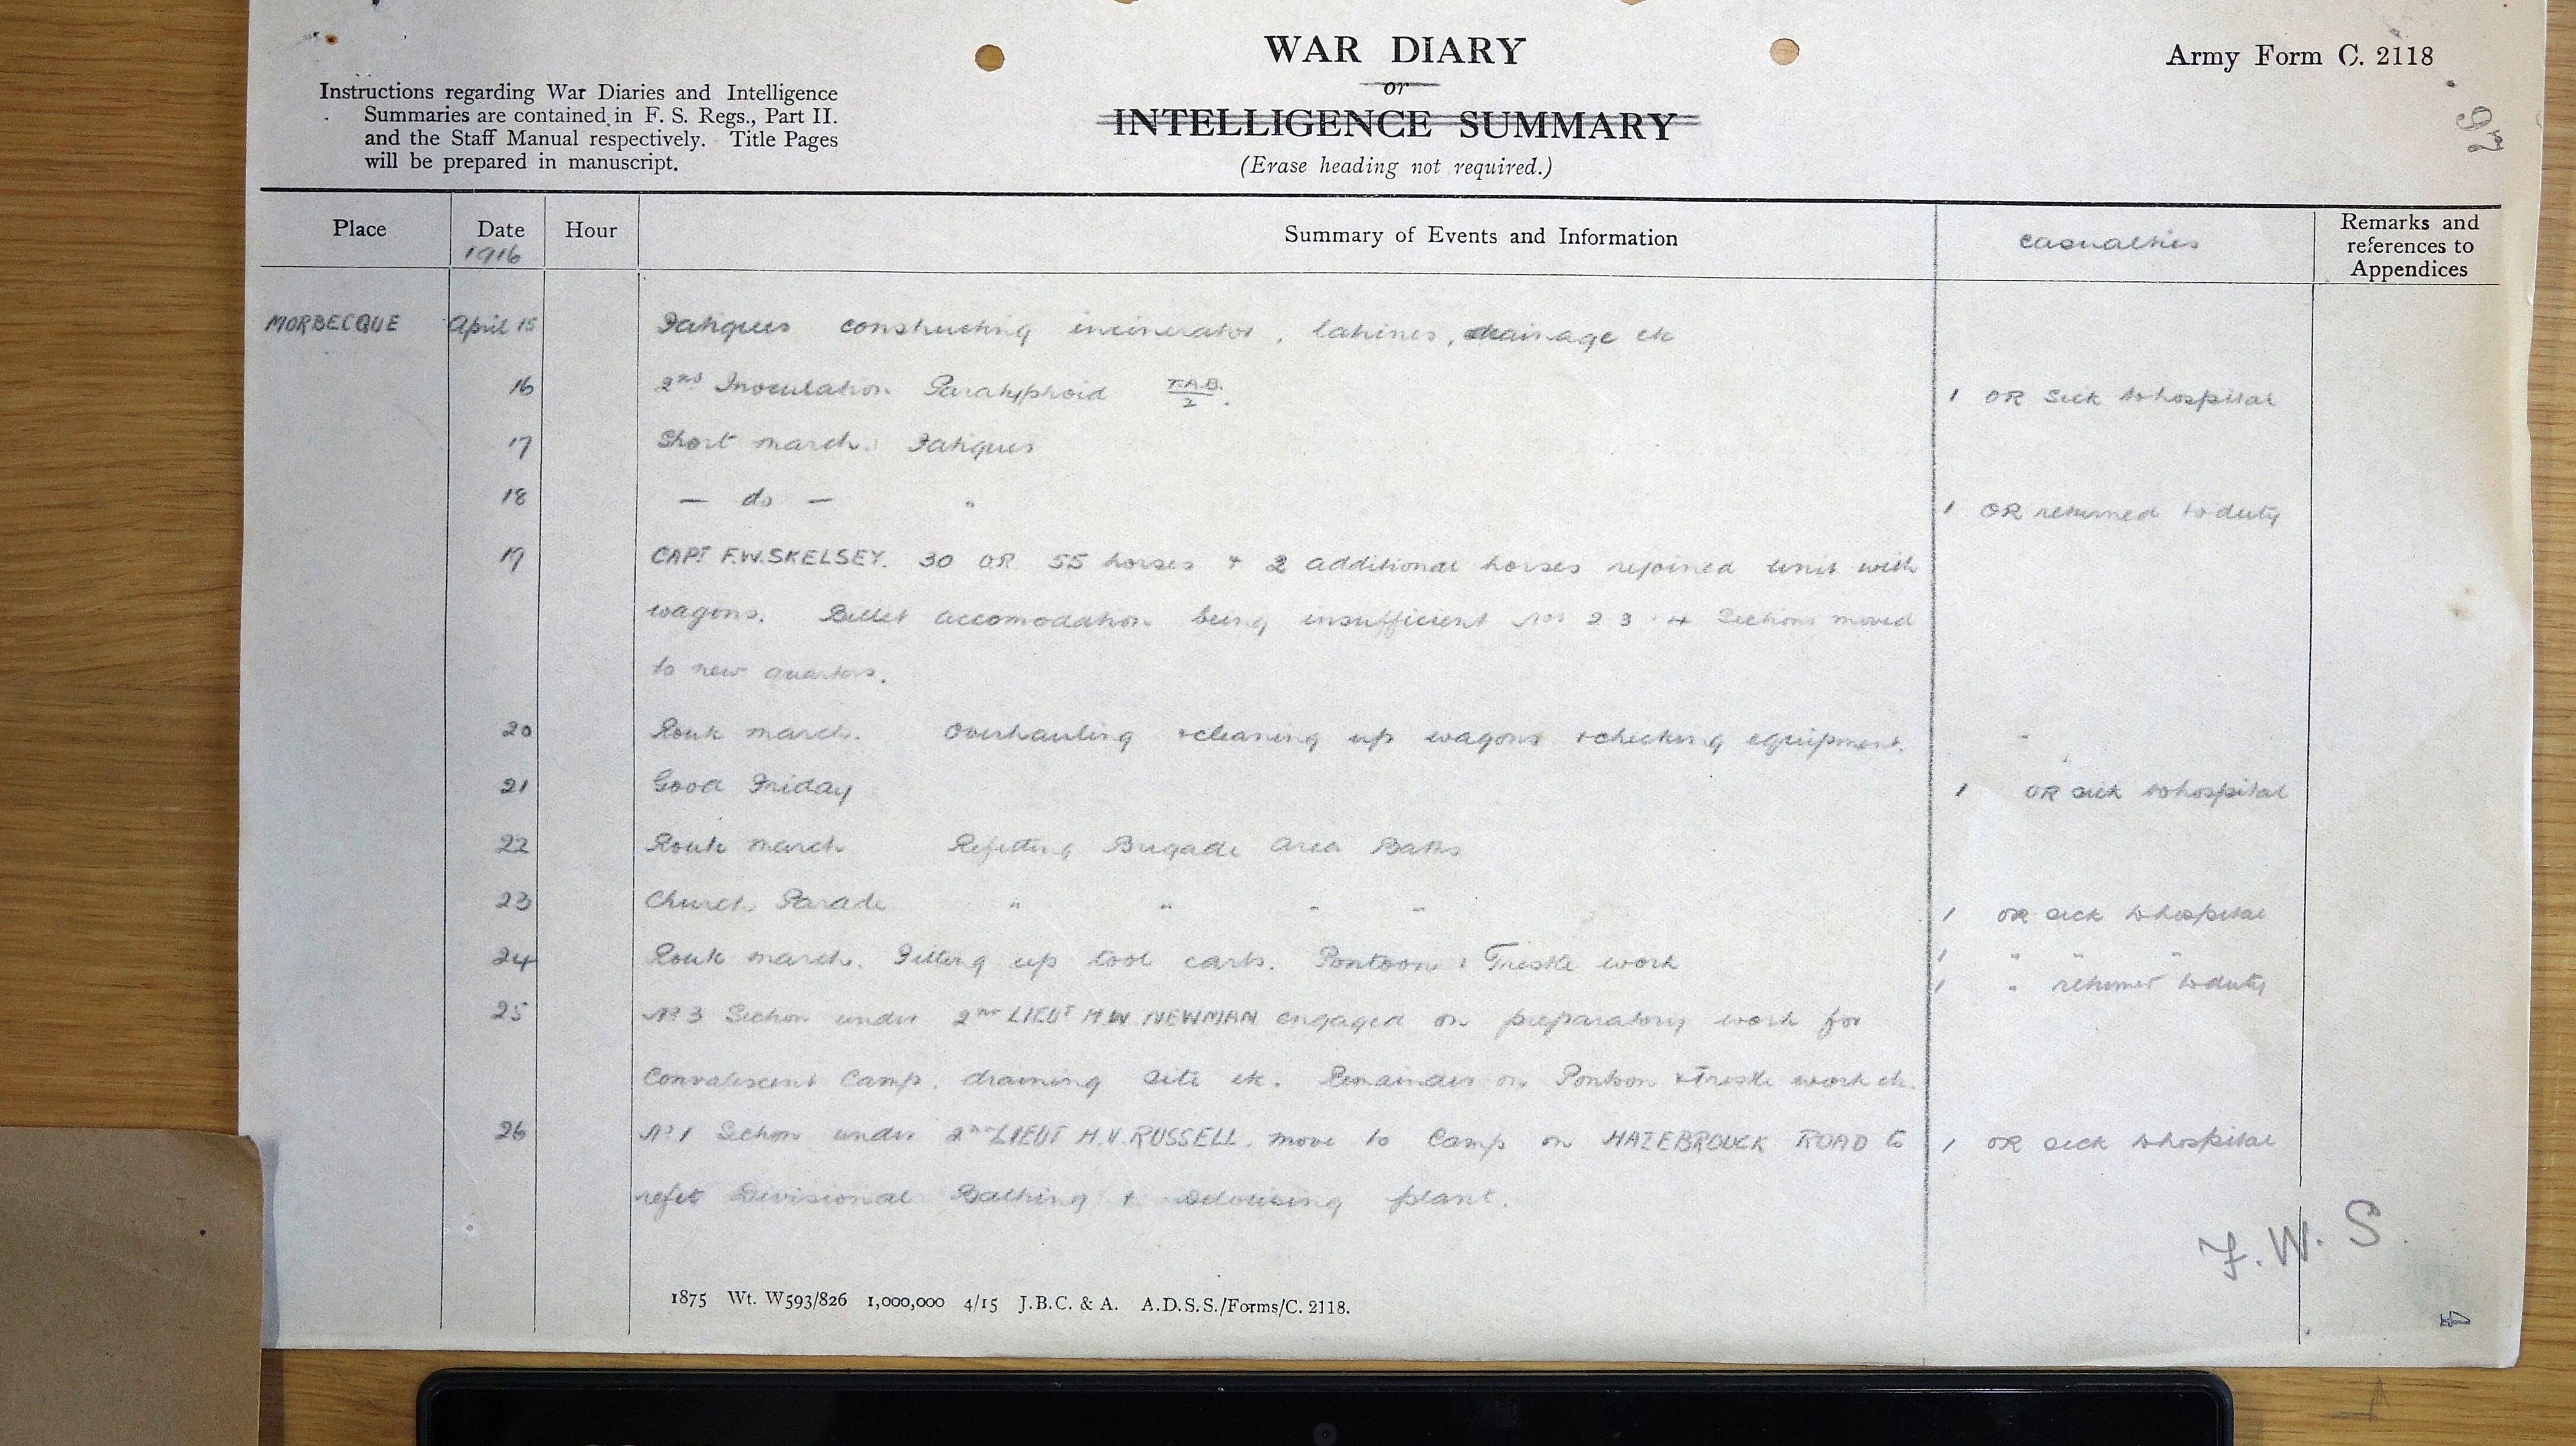 WAR DIARY
or
INTELLIGENCE SUMMARY
(Erase heading not required.)
Army Form C. 2118
Instructions regarding War Diaries and Intelligence
Summaries are contained in F. S. Regs., Part II.
and the Staff Manual respectively. Title Pages
will be prepared in manuscript.
Place Date Hour Summary of Events and Information casualties Remarks and
references to
Appendices
1916
MORBECQUE April 15 Fatigues constructing incinerator, latrines, drainage etc
16 2nd Inoculation Paratyphoid T.A.B./2. 1 OR sick to hospital
17 Short march. Fatigues
18 — do — " 1 OR returned to duty
19 CAPT F.W. SKELSEY. 30 OR 55 horses + 2 additional horses rejoined unit with
wagons. Billet accomodation being insufficient Nos 2 3 + 4 Sections moved
to new quarters.
20 Route march. Overhauling + cleaning up wagons + checking equipment. -
21 Good Friday 1 OR sick to hospital
22 Route march Refitting Brigade Area Baths
23 Church Parade " " " " 1 OR sick to hospital
24 Route march. Fitting up tool carts. Pontoon + Trestle work 1 " " "
1 " returned to duty
25 No 3 Section under 2nd LIEUT H.W NEWMAN engaged on preparatory work for
Convalescent Camp, draining site etc. Remainder on Pontoon + Trestle work etc.
26 No 1 Section under 2nd LIEUT H.V. RUSSELL. move to Camp on HAZEBROUCK ROAD to 1 OR sick to hospital
refit Divisional Bathing + Delousing plant.
F.W.S.
1875 Wt. W593/826 1,000,000 4/15 J.B.C. & A. A.D.S.S./Forms/C. 2118.
4